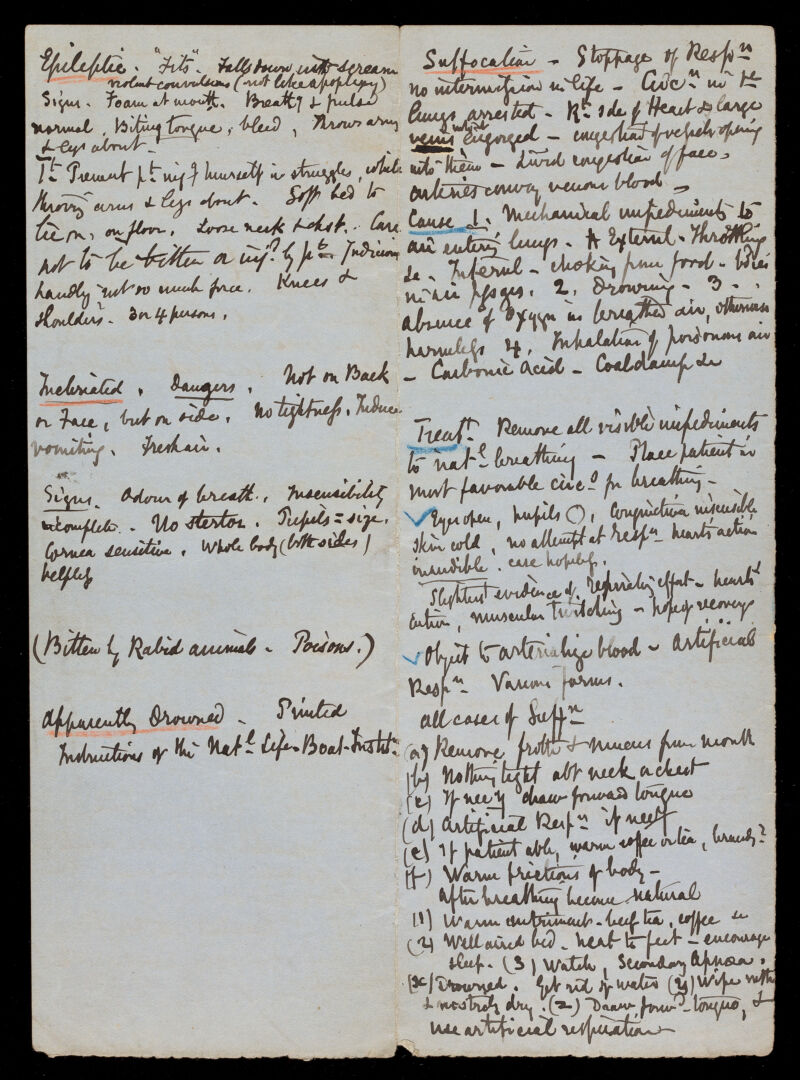 Epileptic. "Fits". Falls down with scream
violent convulsions (not like apoplexy)
Signs. Foam at mouth. Breathg & pulse
normal, Biting tongue, bleed, Throws arms
& legs about.
Tt. Prevent pt. injg himself in struggle, while
throwg arms & legs about. Soft bed to
lie on, on floor. Loose neck & chest. Care
not to be bitten or injd by pt. Judicious
handlg not so much force. Knees &
shoulders. 3 or 4 persons.
Inebriated. Dangers. Not on Back
or Face, but on side. no tightness. Induce
vomiting. Fresh air.
Signs. Odour of breath. Insensibility
incomplete. No stertor. Pupils = size.
Cornea sensitive. Whole body (both sides)
helpless
(Bitten by Rabid animals - Poisons.)
Apparently Drowned. Printed
Instructions of the Natl. Life-Boat-Institn
Suffocation - Stoppage of Respn
no intermission in life - Circn in the
lungs arrested. Rt. side of Heart & large
veins engorged - congestion of vessels opening
into them - Livid congestion of face.
arteries convey venous blood -
Cause 1. Mechanical impediments to
air enterg lungs. A External - Throttling
&c. Internal - choking from food - bodies
in air passges. 2. Drowning - 3
absence of Oxygn in breathed air, otherwise
harmless 4. Inhalation of poisonous air
- Carbonic Acid - Coaldamp &c
Treatt. Remove all visible impediments
to natl breathing - Place patient in
most favorable circs for breathing -
Eyes open, pupils O, conjunctiva insensible
skin cold, no attempt at respn hearts action
inaudible. case hopeless.
Slightest evidence of respiratory effort - hearts
action, muscular twitching - hope of recovery
Object to arterialize blood - Artificial
Respn Various forms.
all cases of Suffn
(a) Remove froth & mucus from mouth
(b) Nothing tight abt neck or chest
(c) If necy draw forward tongue
(d) Artificial Respn if necy
(e) If patient able, warm coffee or tea, brandy?
(f) Warm frictions of body -
after breathing become natural
(1) Warm nutriment - beef tea, coffee &c
(2) Well aired bed - heat to feet - encourage
sleep. (3) Watch, Secondary Apnœa.
(x) Drowned. Get rid of water (y) Wipe mouth
& nostrils dry. (z) Draw forwd tongue, &
use artificial respiration